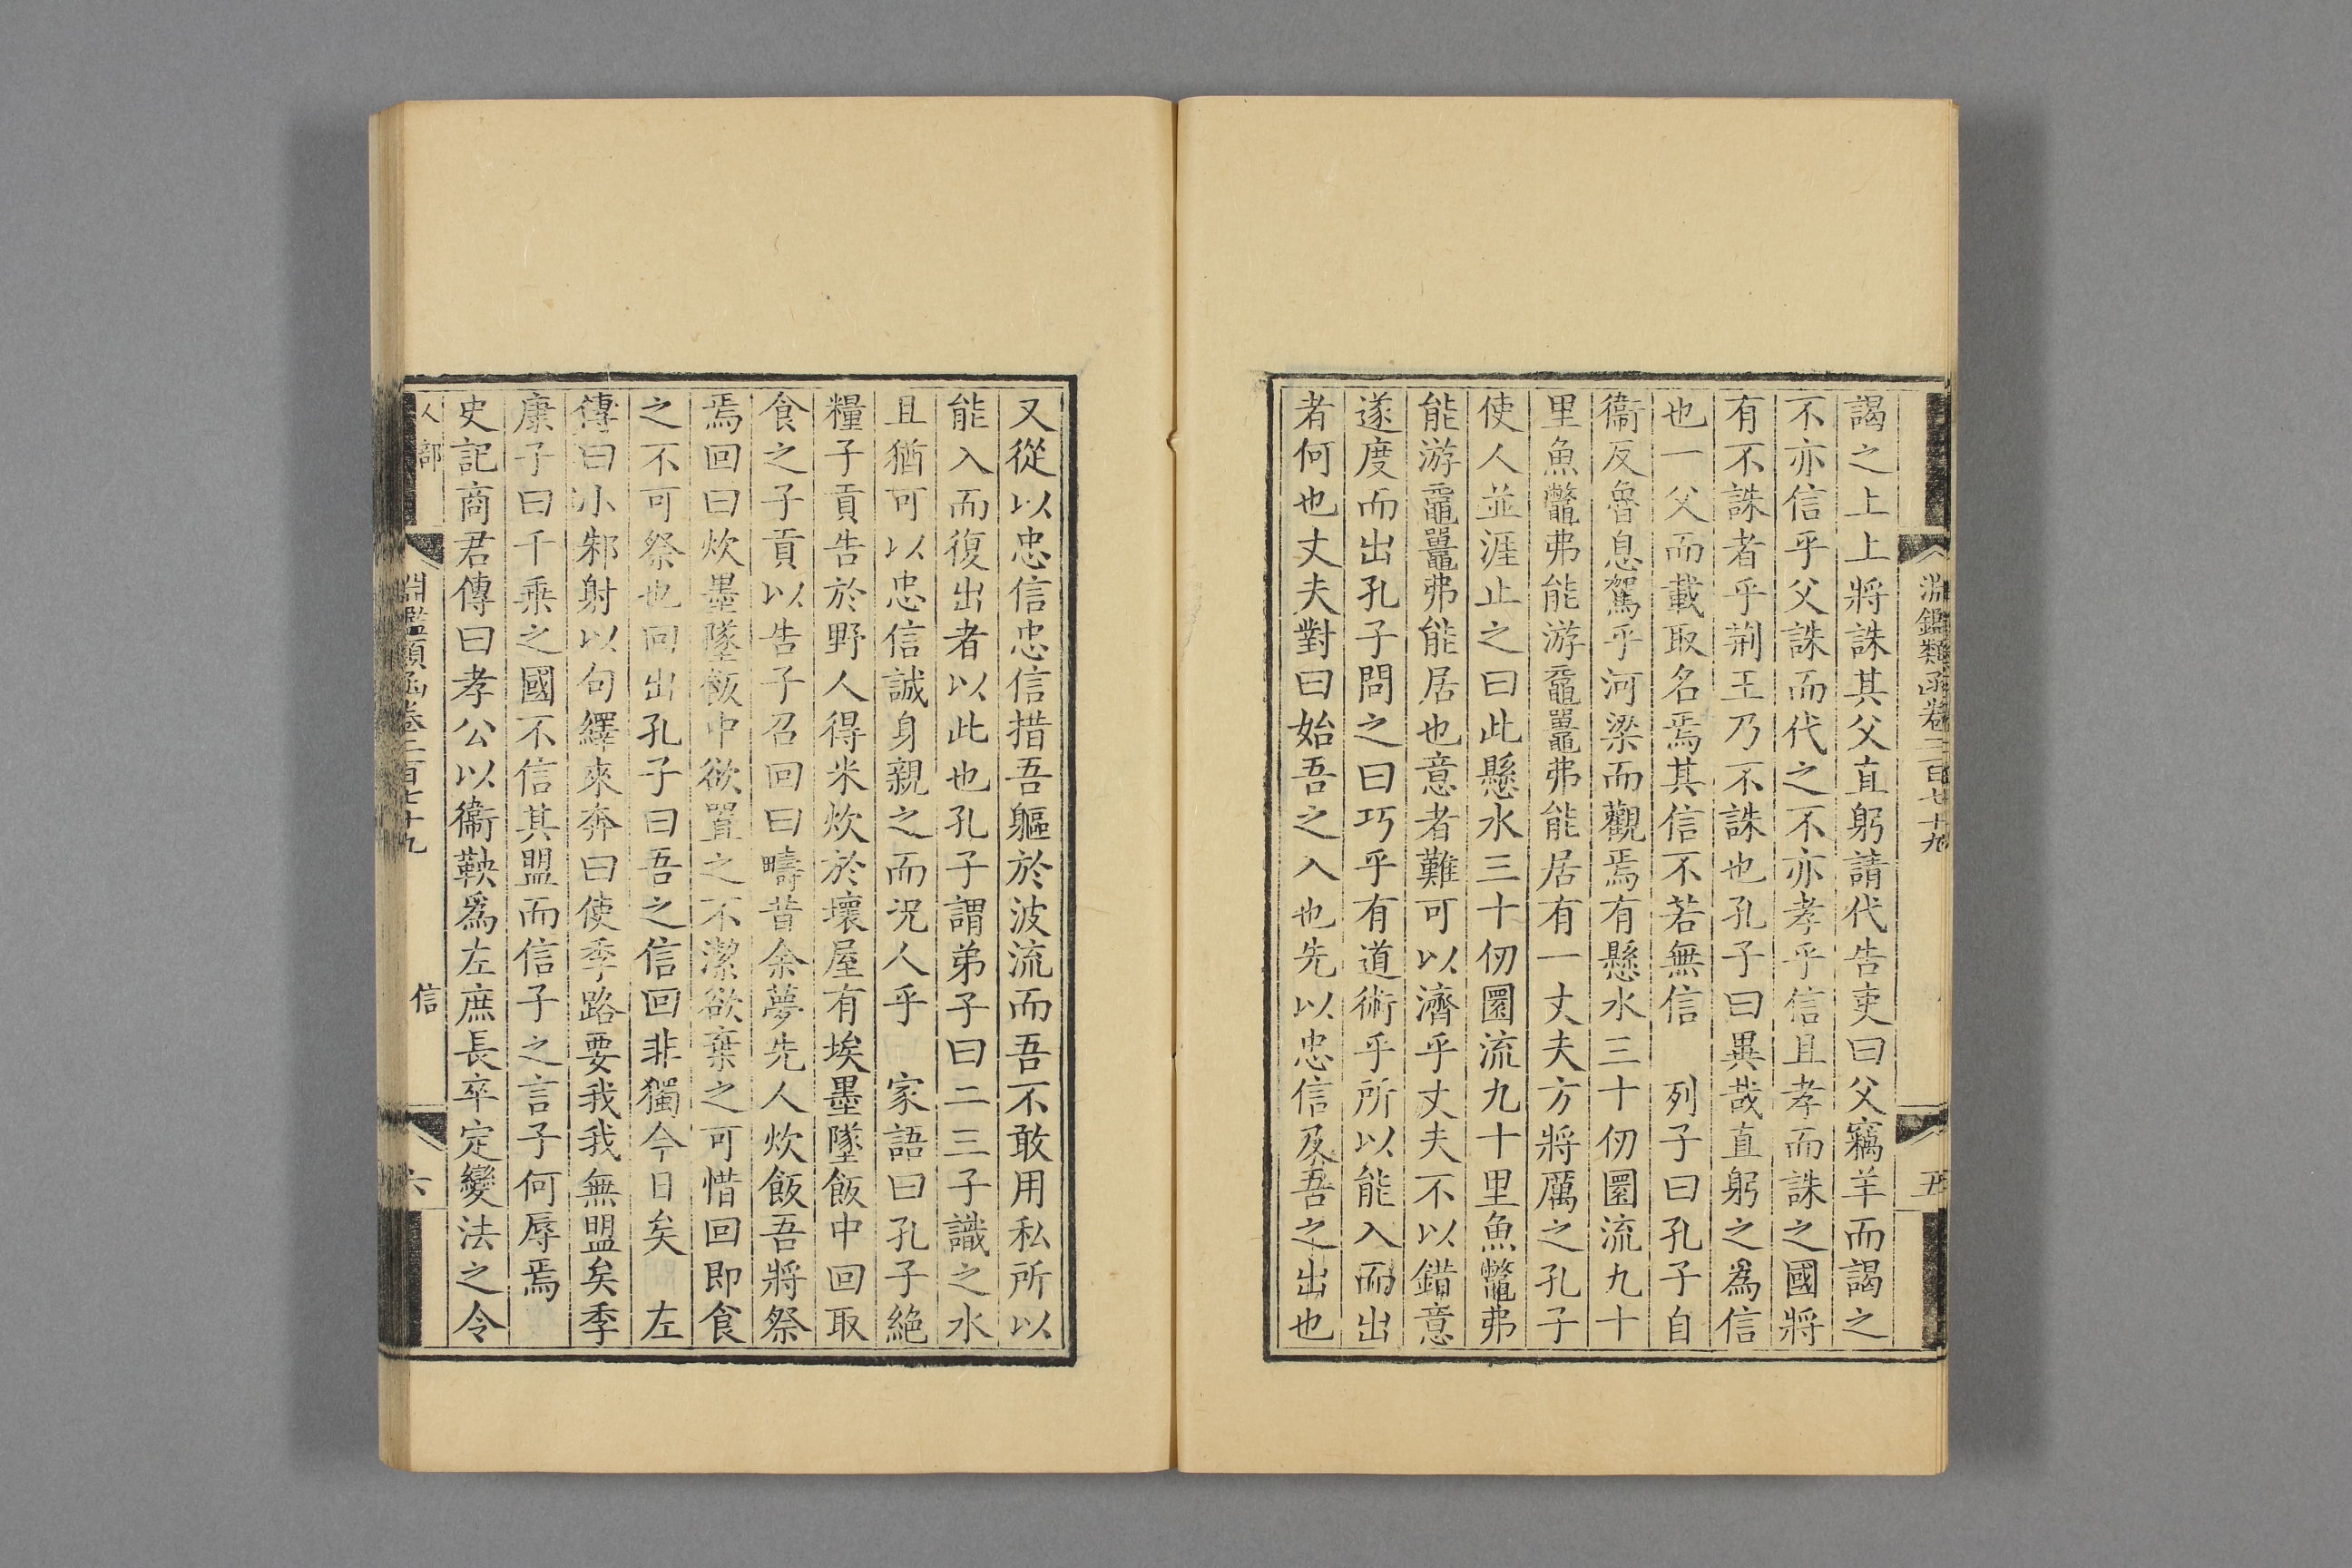 淵鑑類函卷二百七十九
五
謁之上上將誅其父直躬請代告吏曰父竊羊而謁之
不亦信乎父誅而代之不亦孝乎信且孝而誅之國將
有不誅者乎荆王乃不誅也孔子曰異哉直躬之爲信
也一父而載取名焉其信不若無信 列子曰孔子自
衞反魯息駕乎河梁而觀焉有懸水三十仞圜流九十
里魚鼈弗能游黿鼉弗能居有一丈夫方將厲之孔子
使人並涯止之曰此懸水三十仞圜流九十里魚鼈弗
能游黿鼉弗能居也意者難可以濟乎丈夫不以錯意
遂度而出孔子問之曰巧乎有道術乎所以能入而出
者何也丈夫對曰始吾之入也先以忠信及吾之出也
又從以忠信忠信措吾軀於波流而吾不敢用私所以
能入而復出者以此也孔子謂弟子曰二三子識之水
且猶可以忠信誠身親之而況人乎 家語曰孔子絶
糧子貢告於野人得米炊於壞屋有埃墨墜飯中回取
食之子貢以告子召回曰疇昔余夢先人炊飯吾將祭
焉回曰炊墨墜飯中欲置之不潔欲棄之可惜回即食
之不可祭也回出孔子曰吾之信回非獨今日矣 左
傳曰小邾射以句繹來奔曰使季路要我我無盟矣季
康子曰千乘之國不信其盟而信子之言子何辱焉
史記商君傳曰孝公以衞鞅爲左庶長卒定變法之令
人部
淵鑑類函卷二百七十九
信
六